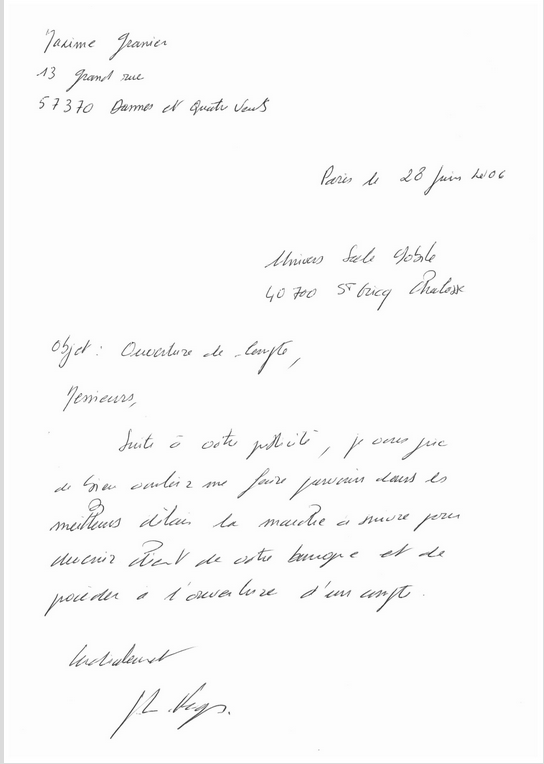 Maxime Granier
13 grand rue
57370 Dannes et Quatre Vents
Paris le 28 juin 2006
Univers Mobile
40700 St Cricq Chalosse
Objet : Ouverture de compte,
Messieurs,
Suite à votre publicité, je vous prie
de bien vouloir me faire parvenir dans les
meilleurs délais la marche à suivre pour
devenir client de votre banque et de
procéder à l'ouverture d'un compte.
Cordialement